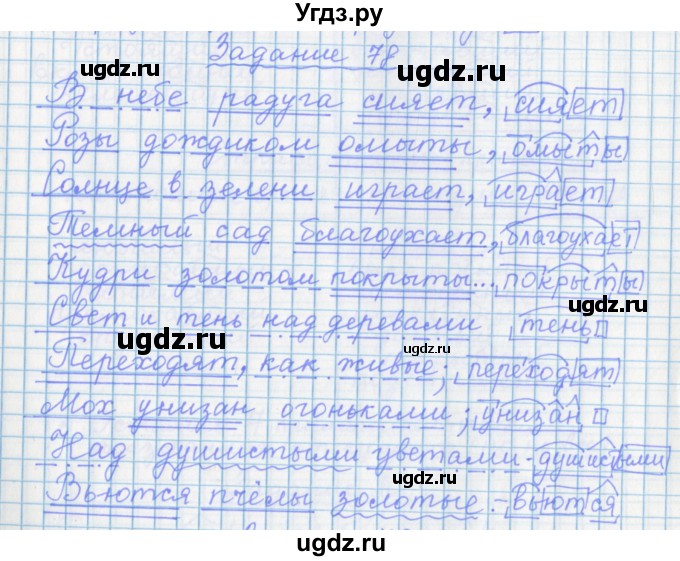 Угдз.ру
Задание 78
ugdz.ru ugdz.ru
В небе радуга сияет, сияет
Розы дождиком омыты, омыты
Солнце в зелени играет, играет
ugdz.ru ugdz.ru
Темный сад благоухает, благоухает
Кудри золотом покрыты... покрыты
Свет и тень над деревами тень
ugdz.ru ugdz.ru
Переходят, как живые; переходят
Мох унизан огоньками; унизан
Над душистыми цветами - душистыми
Вьются пчёлы золотые. - вьются
ugdz.ru ugdz.ru
Угдз.ру